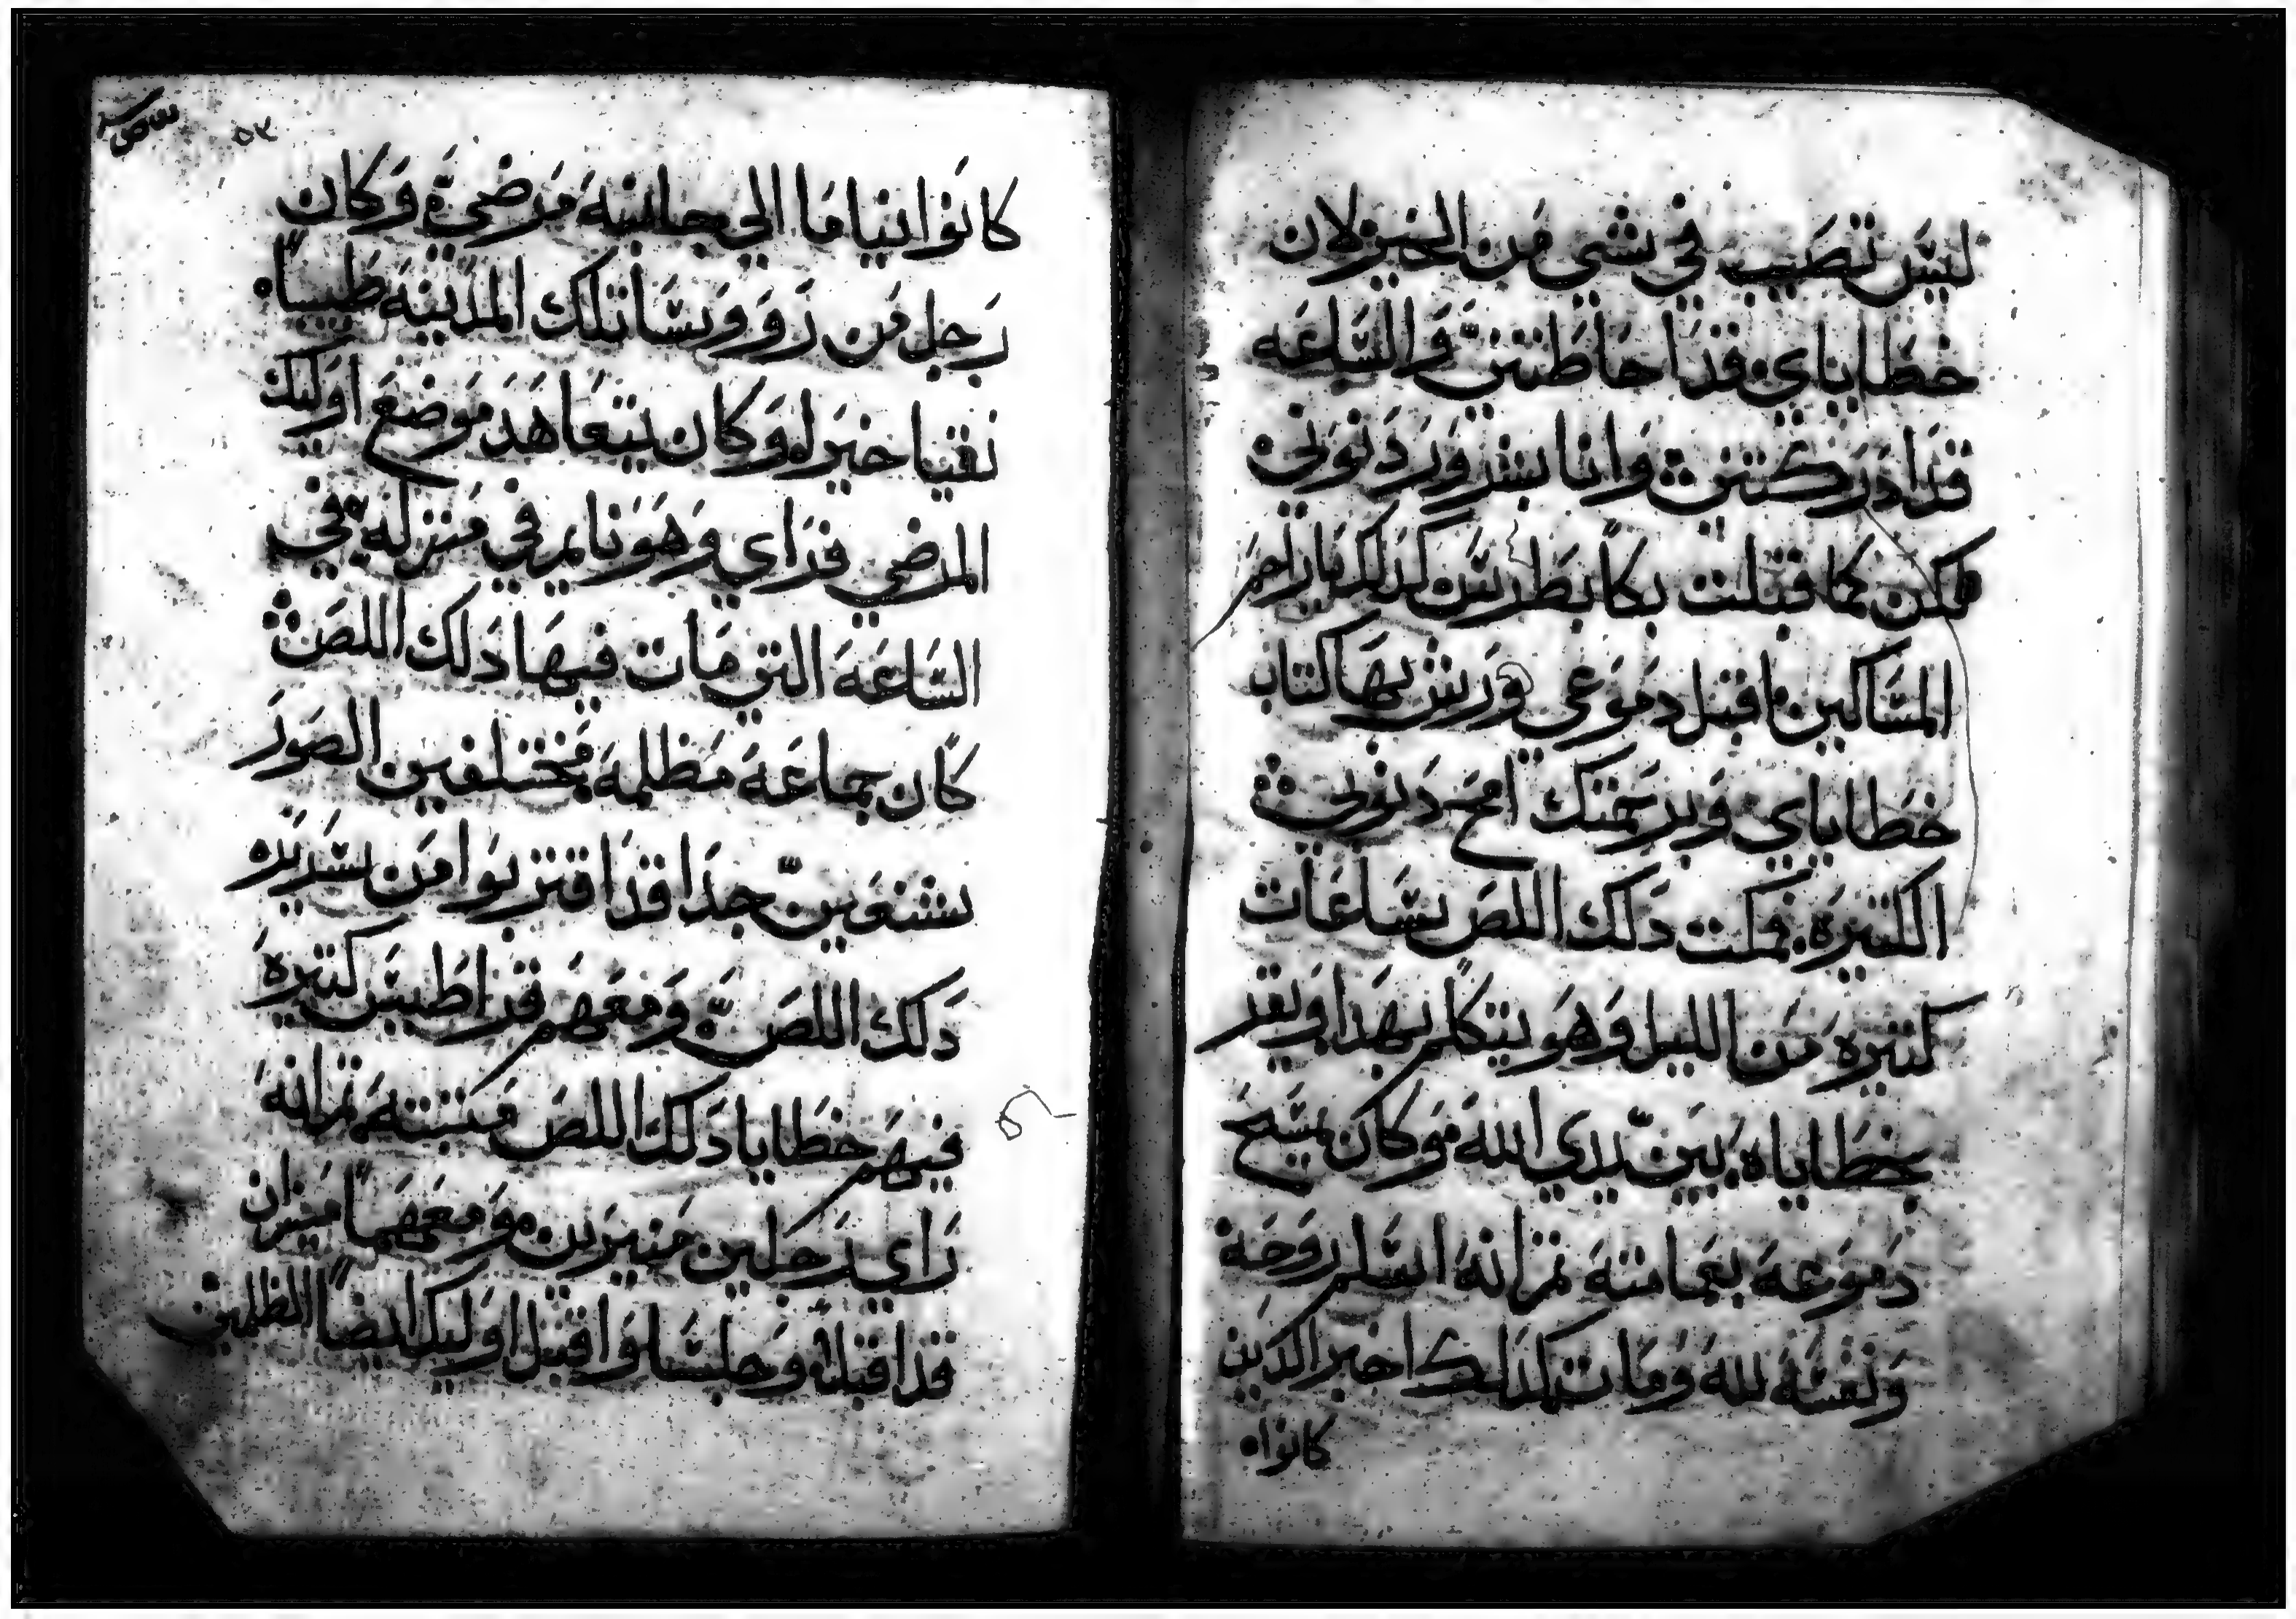 ليس تصيب في شي من الخير لان
خطاياي قد احاطتني والساعه
قد ادركتني وانا بشرور دنوبي
لكن كما قبلت بكا بطرس كدلك ياراحم
المساكين اقبل دموعي ورش بها كتاب
خطاياي وبرحمتك امح دنوبي
الكتيرة فمكت دلك اللص ساعات
كتيره من الليل وهو يتكلم بهدا ويقر
بخطاياه بين يدي الله وكان يمسح
دموعه بعمامته تم انه اسلم روحه
ونفسه لله ومات كدلك اخبر الدين
كانوا
٥٣
كانوا نياما الي جانبه مرضي وكان
رجل من روورسا تلك المدينه طبيبا
نقيا خيرا وكان يتعاهد موضع اوليك
المرضي فراي وهو نايم في منزله في
الساعه التي مات فيها دلك اللص
كان جماعه مظلمه مختلفين الصور
شنعين جدا قد اقتربوا من سرير
دلك اللص ومعهم قراطيس كتيره
فيهم خطايا دلك اللص مكتبته تم انه
راي رجلين منيرين ومعهما ميزان
قد اقبلا وجلسا واقبل اوليك ايضا المظلمين